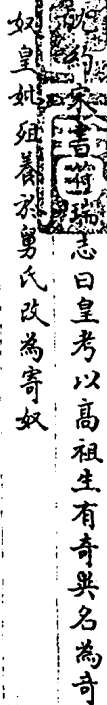 沈約宋書符瑞志曰皇考以高祖生有奇異名為奇
奴皇妣殂養於舅氏改為寄奴